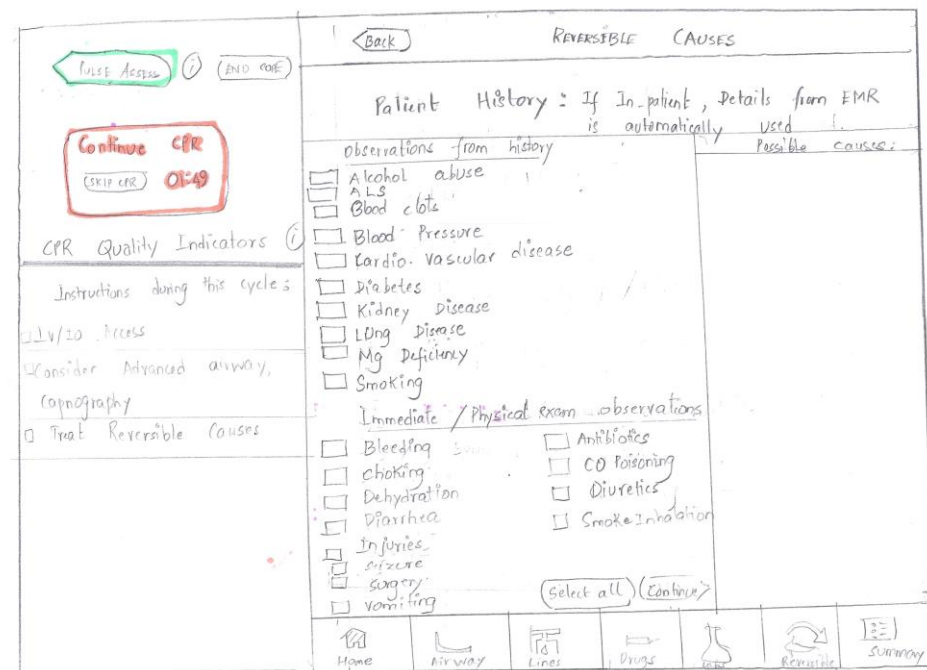 PULSE ASSESS
i
END CODE
Continue CPR
SKIP CPR
01:49
CPR Quality Indicators i
Instructions during this cycle:
IV/IO Access
Consider Advanced airway,
Capnography
Treat Reversible Causes
Back
REVERSIBLE CAUSES
Patient History : If In-patient, Details from EMR
is automatically used !.
Observations from history
Alcohol abuse
ALS
Blood clots
Blood Pressure
Cardio-vascular disease
Diabetes
Kidney Disease
LUng Disease
Mg Deficiency
Smoking
Possible causes:
Immediate / Physical exam observations
Bleeding
Choking
Dehydration
Diarrhea
Injuries
seizure
surgery
vomiting
Antibiotics
CO Poisoning
Diuretics
Smoke Inhalation
Select all
Continue
Home
Airway
Lines
Drugs
Reversible
Summary